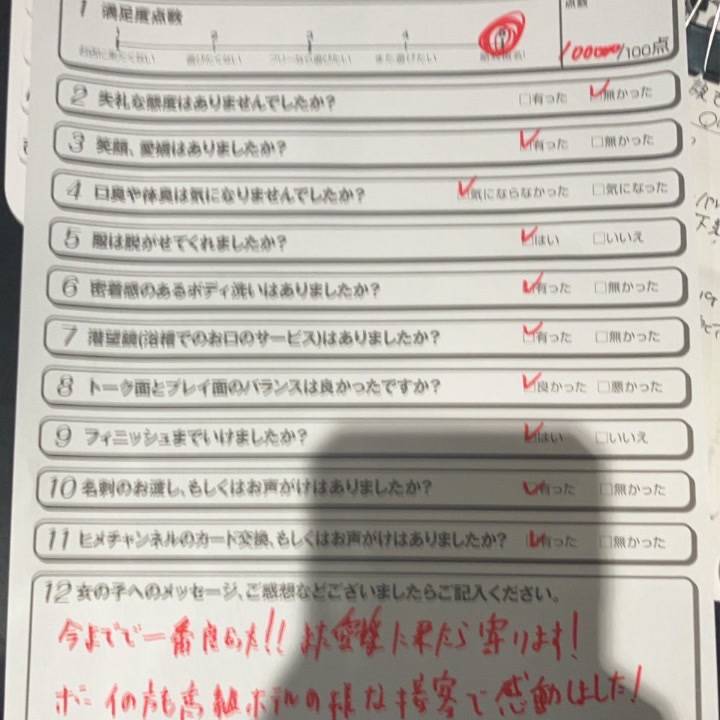 1 満足度点数
点数
1 2 3 4
また遊びたい
100000/100点
2 失礼な態度はありませんでしたか? □有った □無かった
3 笑顔、愛嬌はありましたか? □有った □無かった
4 口臭や体臭は気になりませんでしたか? □気にならなかった □気になった
5 服は脱がせてくれましたか? □はい □いいえ
6 密着感のあるボディ洗いはありましたか? □有った □無かった
7 潜望鏡(浴槽でのお口のサービス)はありましたか? □有った □無かった
8 トーク面とプレイ面のバランスは良かったですか? □良かった □悪かった
9 フィニッシュまでいけましたか? □はい □いいえ
10 名刺のお渡し、もしくはお声がけはありましたか? □有った □無かった
11 ヒメチャンネルのカード交換、もしくはお声がけはありましたか? □有った □無かった
12 女の子へのメッセージ、ご感想などございましたらご記入ください。
今までで一番良かった!! また愛媛に来たら寄ります!
ボーイの方も高級ホテルの様な接客で感動しました!